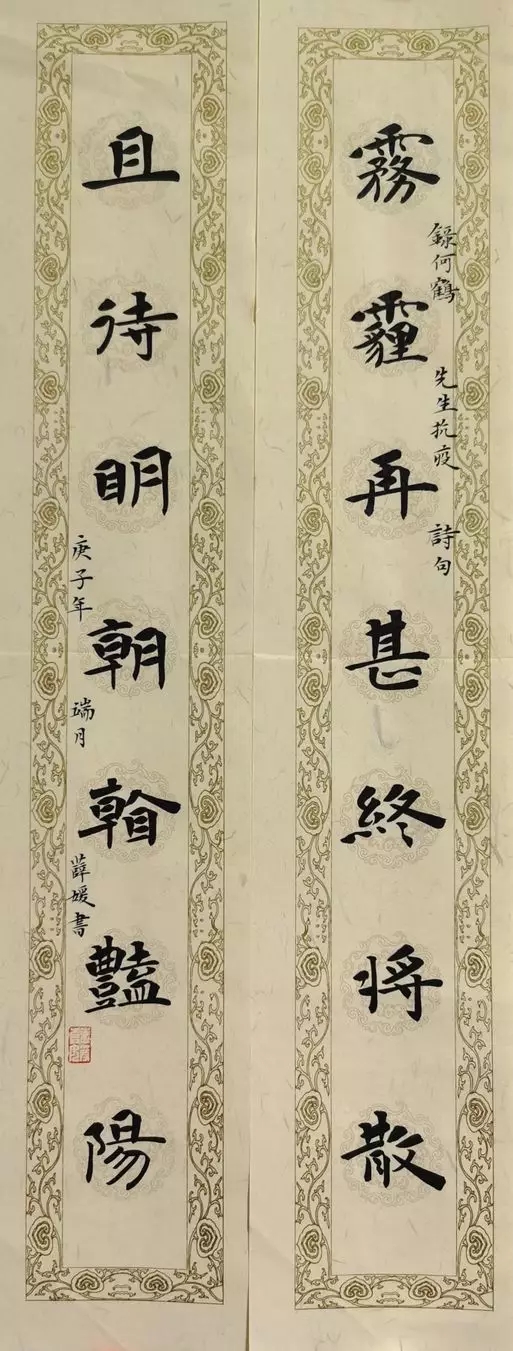 霧霾再甚終将散
録何鶴先生抗疫詩句
且待眀朝豔陽
庚子年端月薛媛書